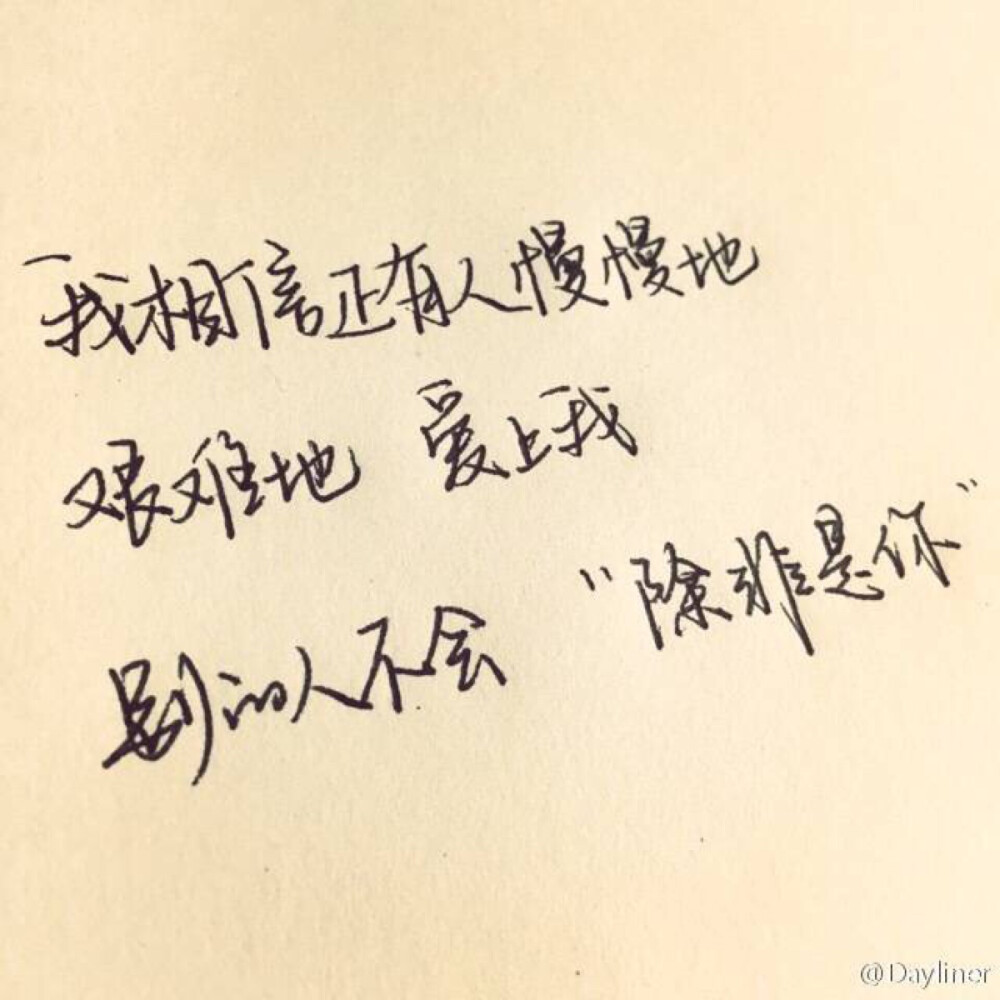 我相信正有人慢慢地
艰难地 爱上我
别的人不会 “除非是你”
@Dayliner